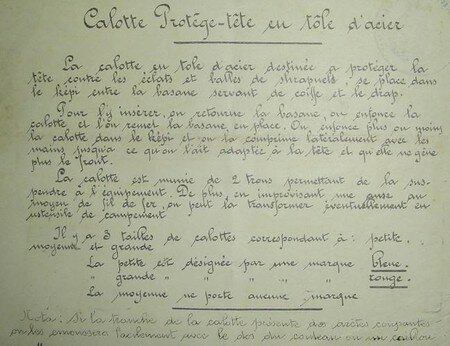 Calotte Protège-tête en tôle d'acier
La calotte en tole d'acier destinée a protéger la
tête contre les éclats et balles de shrapnels se place dans
le képi entre la basane servant de coiffe et le drap.
Pour l'y insérer, on retourne la basane, on enfonce la
calotte et l'on remet la basane en place. On enfonce plus ou moins
la calotte dans le képi et on la comprime latéralement avec les
mains jusqu'a ce qu'on l'ait adaptée à la tête et qu'elle ne gène
plus le front.
La calotte est munie de 2 trous permettant de la sus-
pendre à l'équipement. De plus, en improvisant une anse au
moyen de fil de fer, on peut la transformer éventuellement en
ustensile de campement
Il y a 3 tailles de calottes correspondant à : petite.
moyenne et grande
La petite est désignée par une marque bleue.
" grande " " " " rouge.
La moyenne ne porte aucune marque
Nota: Si la tranche de la calotte présente des arêtes coupantes
on les émoussera facilement avec le dos du couteau ou un caillou